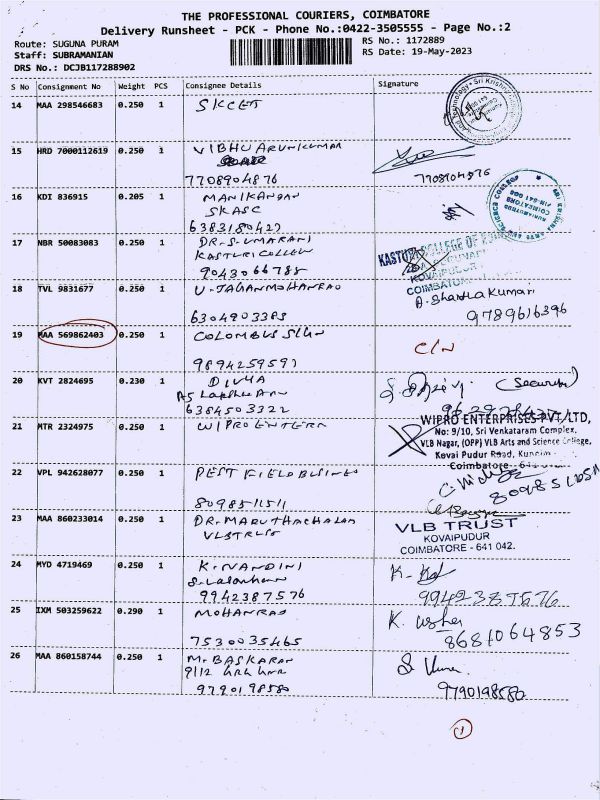 THE PROFESSIONAL COURIERS, COIMBATORE
Delivery Runsheet - PCK - Phone No.:0422-3505555 - Page No.:2
Route: SUGUNA PURAM
RS No.: 1172889
Staff: SUBRAMANIAN
RS Date: 19-May-2023
DRS No.: DCJB117288902
S No Consignment No Weight PCS Consignee Details Signature
14 MAA 298546683 0.250 1 SKCET
15 HRD 7000112619 0.250 1 VIBHU ARUNKUMAR
7708904876
16 KDI 836915 0.205 1 MANIKANDAN
SKASC
6383180427
17 NBR 50083083 0.250 1 DR.S.UMARANI
KASTURI COLLEGE
9043066788
KASTURI COLLEGE OF
KOVAIPUDUR
COIMBATORE
18 TVL 9831677 0.250 1 U.JAGANMOHANRAO
6304903385
A. Shantha Kumari
9789616396
19 MAA 569862403 0.250 1 COLOMBUS SIGN
9894259597
C/N
20 KVT 2824695 0.230 1 DIVYA
6384503322
(Security)
21 MTR 2324975 0.250 1 WIPRO ENTERN
WIPRO ENTERPRISES PVT/LTD,
No: 9/10, Sri Venkataram Complex,
VLB Nagar, (OPP) VLB Arts and Science College,
Kovai Pudur Road,
Coimbatore
22 VPL 942628077 0.250 1 PEST FIELD BUSINES
8098511511
23 MAA 860233014 0.250 1 DR.MARUTHACHALAM
VLBTRUST
VLB TRUST
KOVAIPUDUR
COIMBATORE - 641 042.
24 MYD 4719469 0.250 1 K.NANDINI
9942387576
9942387576
25 IXM 503259622 0.290 1 MOHANRAO
7530035465
K. Usha
8681064853
26 MAA 860158744 0.250 1 Mr BASKARAN
9790198580
9790198580
1